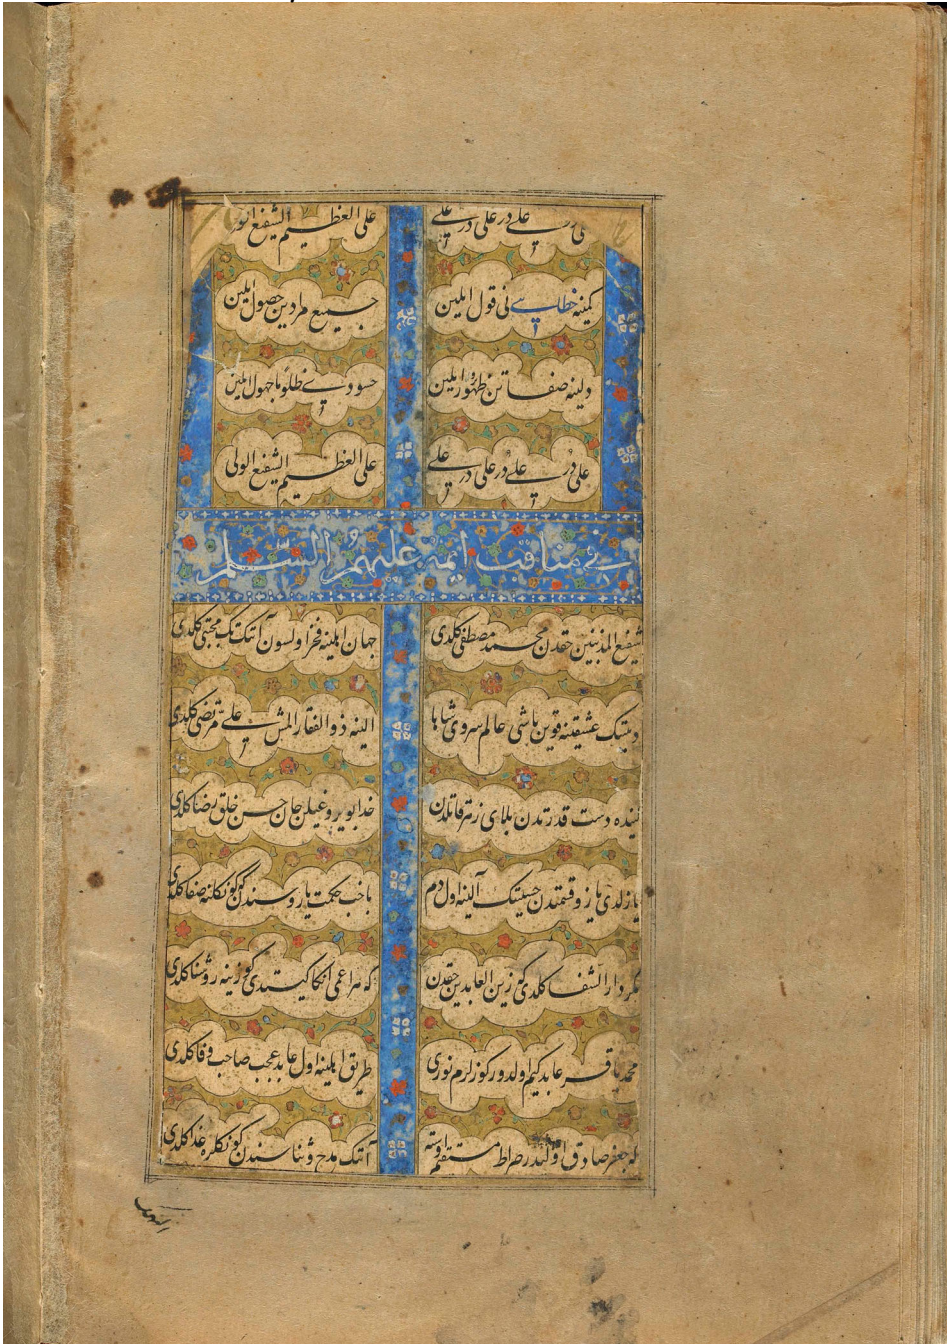 علی در علی در علی
علی العظیم الشفیع الولی
کمینه خطایی نی قول ایلین
جمیع مرادین حصول ایلین
دلینه صفاتن ظهور ایلین
حسودی ظلوما جهول ایلین
علی در علی در علی در علی
علی العظیم الشفیع الولی
فی مناقب ایمه علیهم السلم
شفیع المذنبین حقدن محمد مصطفی کلدی
جهان اهلینه فخر اولسون آنک تک مجتبی کلدی
عشقینه قوین باشی عالم سروی شاها
الینه ذوالفقار المش علی مرتضی کلدی
دست قدرتدن بلای زهر قاتلدن
خدا بویروغیلن جان حسن خلق رضا کلدی
یازلدی یازو قسمتدن حسینک آلینه اول دم
باخب حکمت یازوسندن کوکونکلنه صفا کلدی
دار الشفا کلدی کی زین العابدین حقدن
که هر اعمی انکا کیتدی کوزینه روشنا کلدی
محمد باقر عابد کیم اولدور کوزلرم نوری
طریق اهلینه اول عابد عجب صاحب وفا کلدی
جعفر صادق اولبدر صراط مستقیم اوسته
آنک مدح و ثناسندن کونکلره غدا کلدی